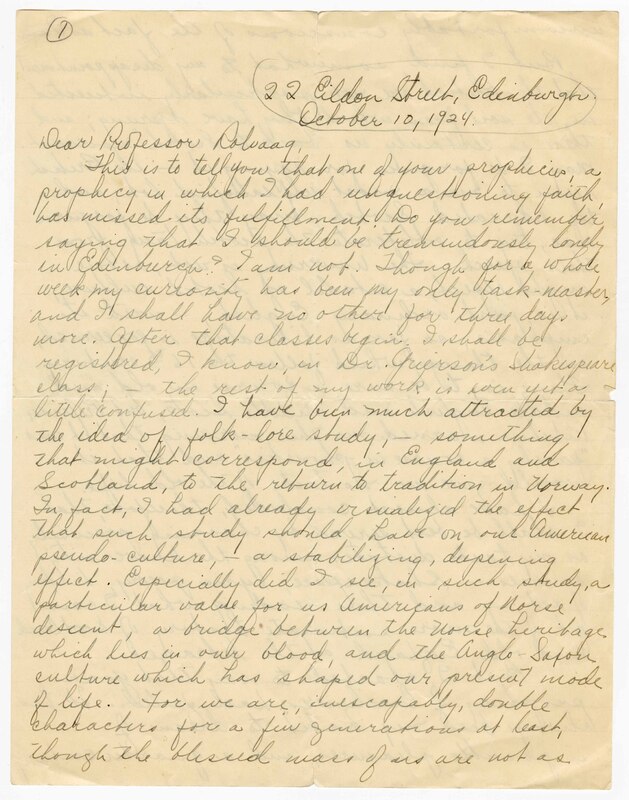 1
22 Eildon Street, Edinburgh.
October 10, 1924.
Dear Professor Rolvaag,
This is to tell you that one of your prophecies, a
prophecy in which I had unquestioning faith,
has missed its fulfillment! Do you remember
saying that I should be tremendously lonely
in Edinburgh? I am not. Though for a whole
week my curiosity has been my only task-master,
and I shall have no other for three days
more. After that classes begin. I shall be
registered, I know, in Dr. Grierson's Shakespeare
class, — the rest of my work is even yet a
little confused. I have been much attracted by
the idea of folk-lore study, — something
that might correspond, in England and
Scotland, to the return to tradition in Norway.
In fact, I had already visualized the effect
that such study should have on our American
pseudo-culture, — a stabilizing, deepening
effect. Especially did I see, in such study, a
particular value for us Americans of Norse
descent, a bridge between the Norse heritage
which lies in our blood, and the Anglo-Saxon
culture which has shaped our present mode
of life. For we are, inescapably, double
characters for a few generations at least,
though the blessed mass of us are not as